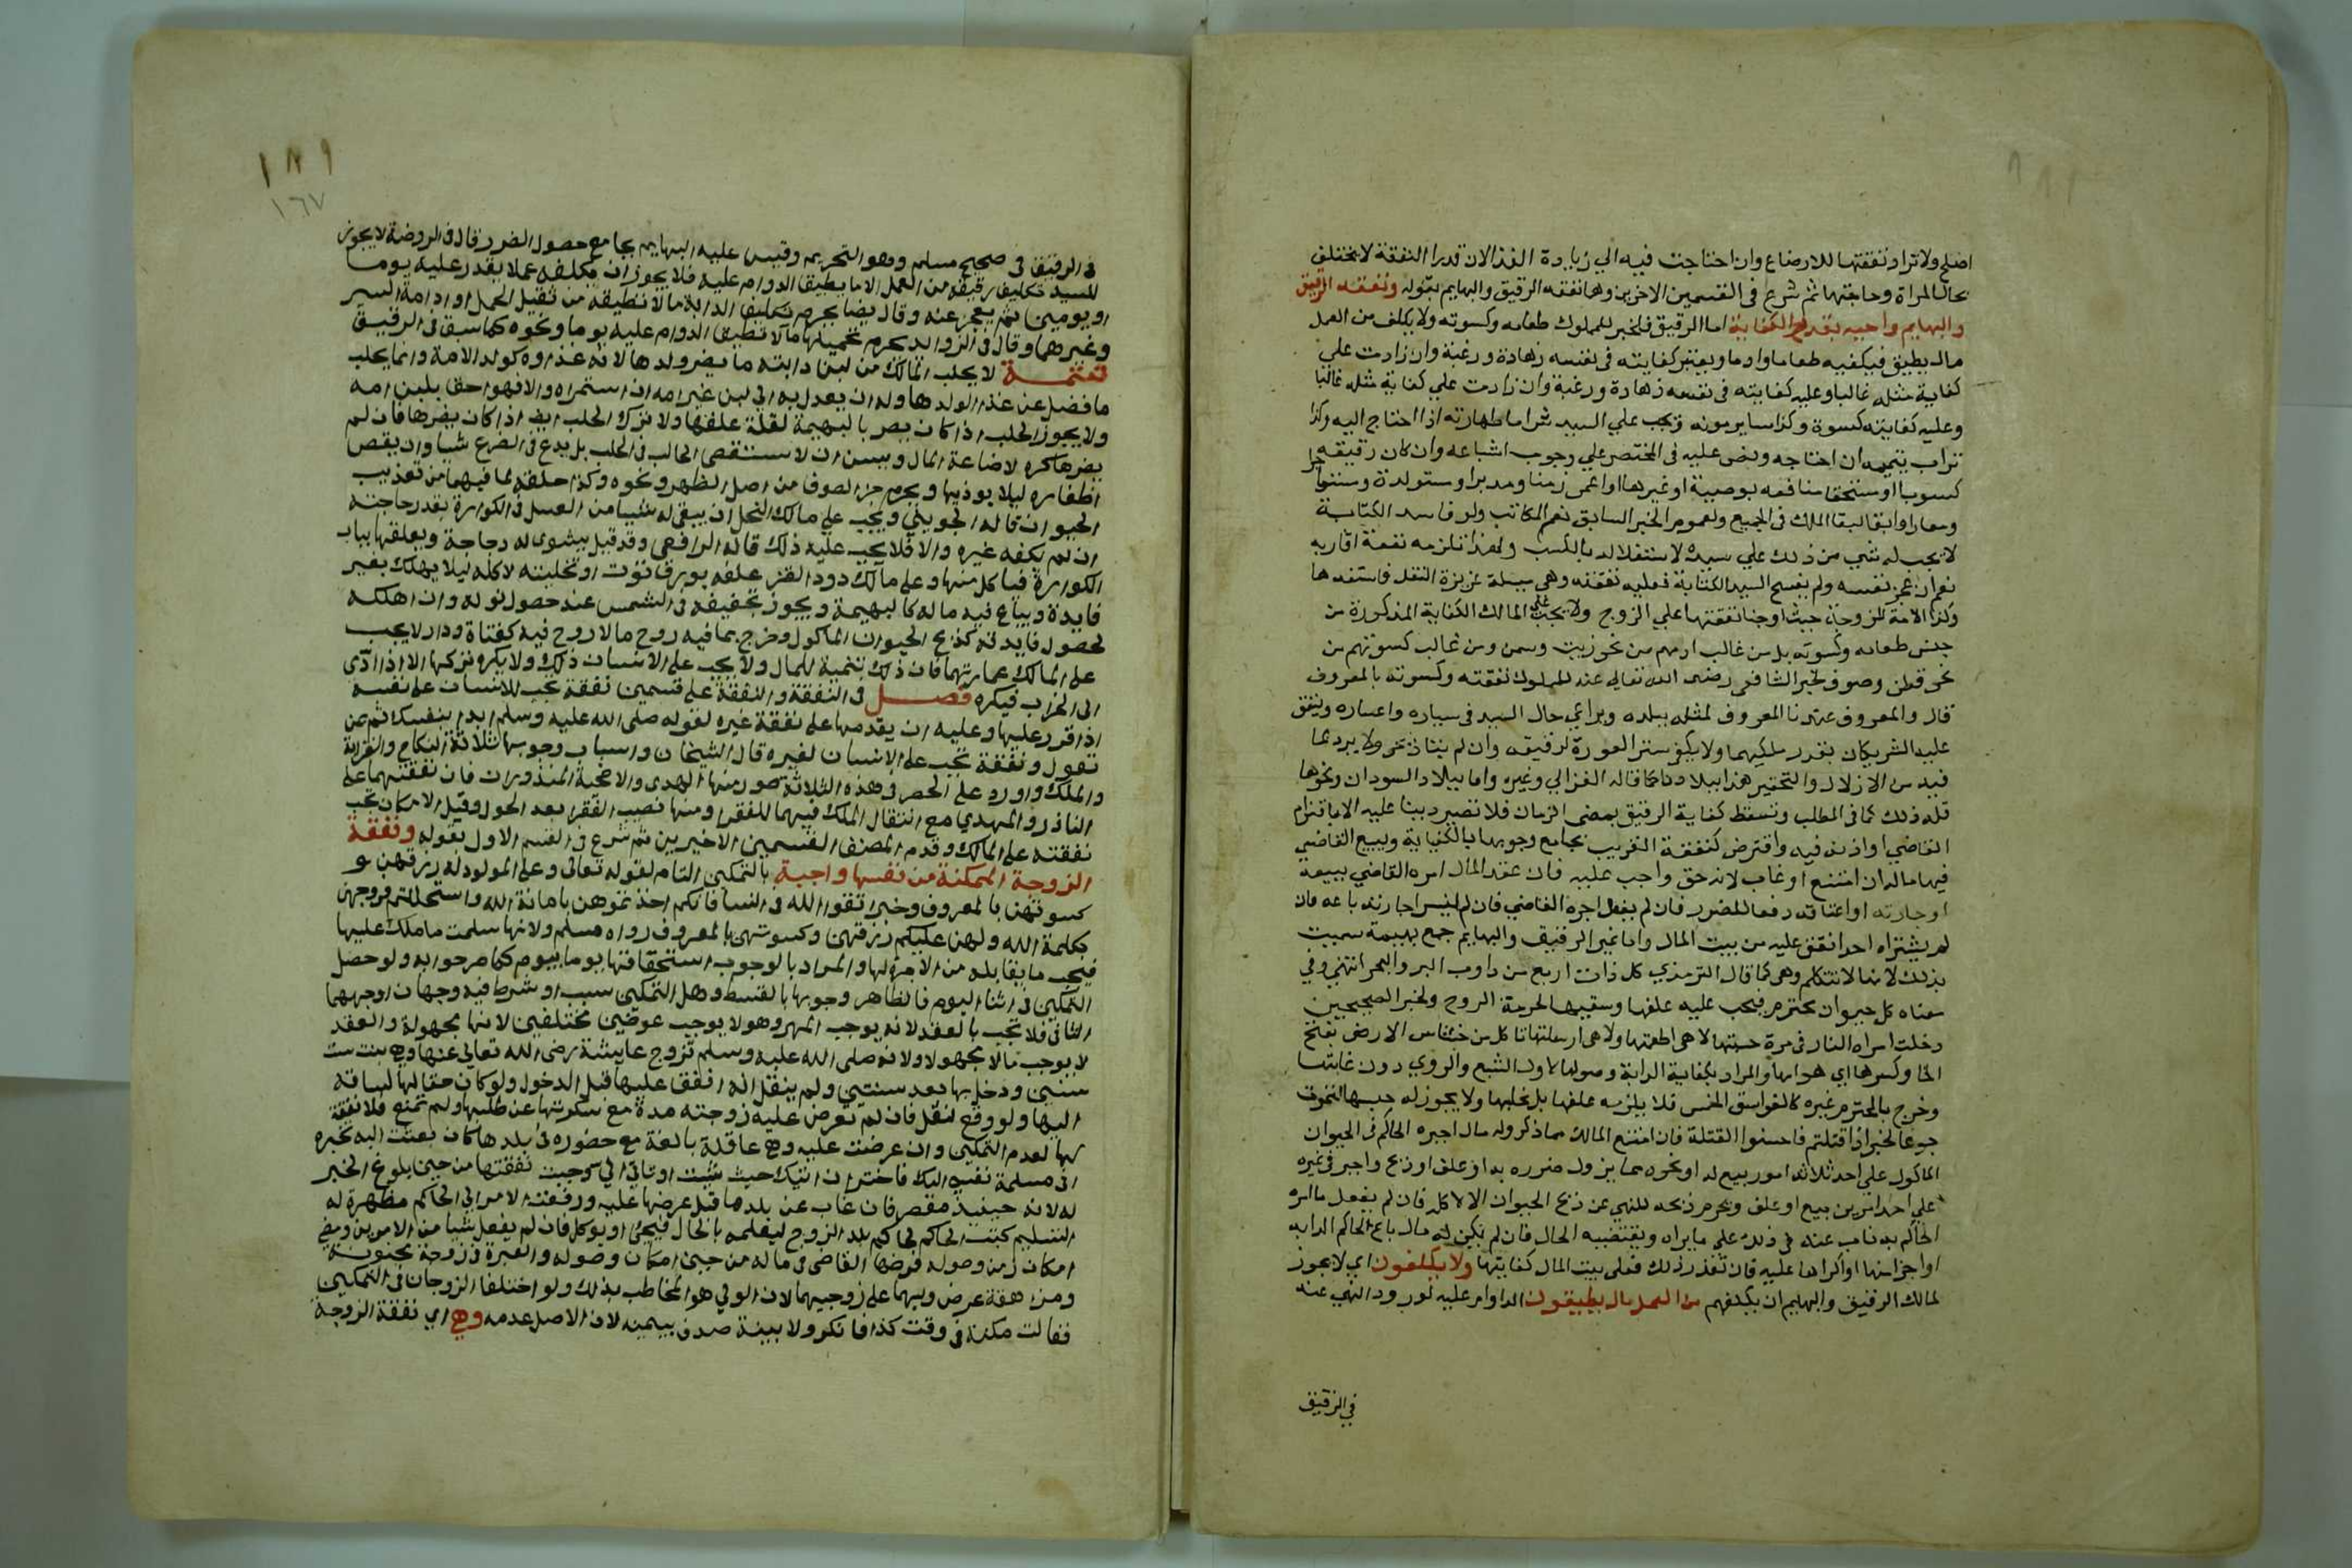 اصلح ولا تزاد نفقتها للارضاع وان احتاجت فيه الي زيادة الغذا لان قدر النفقة لا يختلف
بحال المراة وحاجتها ثم شرع في القسمين الاخرين وهما نفقه الرقيق والبهايم بقوله ونفقه الرقيق
والبهايم واجبه بقدر الكفاية اما الرقيق فلخبر للمملوك طعامه وكسوته ولا يكلف من العمل
مالا يطيق فيكفيه طعاما وادما ويعتبر كفايته في نفسه زهادة ورغبة وان زادت علي
كفاية مثله غالبا وعليه كفايته في نفسه زهادة ورغبة وان زادت علي كفاية مثله غالبا
وعليه كفايته كسوة وكذا ساير مونه ويجب علي السيد شرا ما طهارته اذا احتاج اليه وكذا
تراب يتيممه ان احتاجه ونص عليه في المختصر علي وجوب اشباعه وان كان رقيقه
كسوبا او مستحقا منافعه بوصية او غيرها او اعمى زمنا ومدبرا ومستولدة ومستاجرا
ومعارا وابقا لبقا الملك في الجميع ولعموم الخبر السابق نعم المكاتب ولو فاسد الكتابة
لا يجب له شي من ذلك علي سيده لاستقلاله بالكسب ولهذا تلزمه نفقة اقاربه
نعم ان عجز نفسه ولم يفسخ السيد الكتابة فعليه نفقته وهي مسيلة عزيزة النقل فاستفدها
وكذا الامة المزوجة حيث اوجبنا نفقتها علي الزوج ولا يجب علي المالك الكفاية المذكورة من
جنس طعامه وكسوته بل من غالب ادمهم من نحو زيت وسمن ومن غالب كسوتهم من
نحو قطن وصوف لخبر الشافعي رضي الله تعالي عنه للمملوك نفقته وكسوته بالمعروف
قال والمعروف عندنا المعروف لمثله ببلده ويراعي حال السيد في يساره واعساره وينفق
عليه الشريكان بقدر ملكيهما ولا يكفي ستر العورة لرقيقه وان لم يتاذ بحر ولا برد لما
فيه من الاذلال والتحقير هذا ببلادنا كما قاله الغزالي وغيره واما ببلاد السودان ونحوها
فله ذلك كما في المطلب وتسقط كفاية الرقيق بمضي الزمان فلا تصير دينا عليه الا باقتراض
القاضي او اذنه فيه واقترض كنفقة القريب بجامع وجوبها بالكفاية ويبيع القاضي
فيها ماله ان امتنع او غاب لانه حق واجب عليه فان فقد المال امره القاضي ببيعه
او اجارته او اعتاقه دفعا للضرر فان لم يفعل اجره القاضي فان لم يتيسر اجارته باعه فان
لم يشتره احد انفق عليه من بيت المال واما غير الرقيق والبهايم جمع بهيمة سميت
بذلك لانها لا تتكلم وهي كما قال الترمذي كل ذات اربع من دواب البر والبحر انتهي وفي
معناه كل حيوان محترم فيجب عليه علفها وسقيها لحرمة الروح ولخبر الصحيحين
دخلت امراة النار في هرة حبستها لا هي اطعمتها ولا هي ارسلتها تاكل من خشاش الارض بفتح
الخا وكسرها اي هوامها والمراد بكفاية الدابة وصولها لاول الشبع والروي دون غايتها
وخرج بالمحترم غيره كالفواسق الخمس فلا يلزمه علفها بل يخليها ولا يجوز له حبسها لتموت
جوعا لخبر اذا قتلتم فاحسنوا القتلة فان امتنع المالك مما ذكر وله مال اجبره الحاكم في الحيوان
الماكول علي احد ثلاثة امور بيع له او نحوه مما يزول ضرره به او علف او ذبح واجبر في غيره
علي احد امرين بيع او علف ويحرم ذبحه للنهي عن ذبح الحيوان الا لاكله فان لم يفعل ما امره
الحاكم به ناب عنه في ذلك علي ما يراه ويقتضيه الحال فان لم يكن له مال باع الحاكم الدابه
او اجزا منها او اكراها عليه فان تعذر ذلك فعلي بيت المال كفايتها ولا يكلفون اي لا يجوز
لمالك الرقيق والبهايم ان يكلفهم من العمل مالا يطيقون الدوام عليه لورود النهي عنه
في الرقيق
١٨٩
١٦٧
في الرقيق في صحيح مسلم وهو التحريم وقيس عليه البهايم بجامع حصول الضرر قال في الروضة لا يجوز
للسيد تكليف رقيقه من العمل الا ما يطيق الدوام عليه فلا يجوز ان يكلفه عملا يقدر عليه يوما
او يومين ثم يعجز عنه وقال ايضا يحرم تكليف الدابة مالا تطيقه من ثقيل الحمل او ادامة السير
وغيرهما وقال في الزوايد يحرم تحميلها مالا تطيق الدوام عليه يوما ونحوه كما سبق في الرقيق
تتمة لا يحلب المالك من لبن دابته ما يضر ولدها لانه غذاوه كولد الامة وانما يحلب
ما فضل عن غذا ولدها وله ان يعدل به الي لبن غير امه ان استمراه والا فهو احق بلبن امه
ولا يجوز الحلب اذا كان يضر بالبهيمة لقلة علفها ولا ترك الحلب ايضا اذا كان يضرها فان لم
يضرها كره لاضاعة المال ويسن ان لا يستقصي الحالب في الحلب بل يدع في الضرع شيا وان يقص
اظفاره ليلا يوذيها ويحرم جز الصوف من اصل الظهر ونحوه وكذا حلقه لما فيهما من تعذيب
الحيوان قاله الجويني ويجب علي مالك النحل ان يبقي له شيا من العسل في الكوارة بقدر حاجته
ان لم يكفه غيره والا فلا يجب عليه ذلك قاله الرافعي وقد قيل يشوى له دجاجة ويعلقها بباب
الكوارة فياكل منها وعلي مالك دود القز علفه بورق توت او تخليته لاكله ليلا يهلك بغير
فايدة ويباع فيه ماله كالبهيمة ويجوز تجفيفه في الشمس عند حصول نوله وان اهلكه
لحصول فايدته كذبح الحيوان الماكول وخرج بما فيه روح ما لا روح فيه كقناة ودار لا يجب
علي المالك عمارتهما فان ذلك تنمية للمال ولا يجب علي الانسان ذلك ولا يكره تركها الا اذا ادى
الي الخراب فيكره فصل في النفقة والنفقة علي قسمين نفقة تجب للانسان علي نفسه
اذا قدر عليها وعليه ان يقدمها علي نفقة غيره لقوله صلى الله عليه وسلم ابدا بنفسك ثم بمن
تعول ونفقة تجب علي الانسان لغيره قال الشيخان واسباب وجوبها ثلاثة النكاح والقرابة
والملك واورد علي الحصر في هذه الثلاثة صور منها الهدي والاضحية المنذوران فان نفقتهما علي
الناذر والمهدي مع انتقال الملك فيهما للفقرا ومنها نصيب الفقرا بعد الحول وقبل الامكان تجب
نفقته علي المالك وقدم المصنف القسمين الاخيرين ثم شرع في القسم الاول بقوله ونفقة
الزوجة الممكنة من نفسها واجبة بالتمكين التام لقوله تعالى وعلي المولود له رزقهن و
كسوتهن بالمعروف وخبر اتقوا الله في النسا فانكم اخذتموهن بامانة الله واستحللتم فروجهن
بكلمة الله ولهن عليكم رزقهن وكسوتهن بالمعروف رواه مسلم ولانها سلمت ما ملك عليها
فيجب ما يقابله من الاجرة لها والمراد بالوجوب استحقاقها يوما بيوم كما صرحوا به ولو حصل
التمكين في اثنا اليوم فالظاهر وجوبها بالقسط وهل التمكين سبب او شرط فيه وجهان اوجههما
الثاني فلا تجب بالعقد لانه يوجب المهر وهو لا يوجب عوضين مختلفين لانها مجهولة والعقد
لا يوجب مالا مجهولا ولانه صلى الله عليه وسلم تزوج عايشة رضي الله تعالي عنها وهي بنت ست
سنين ودخل بها بعد سنتين ولم ينقل انه انفق عليها قبل الدخول ولو كان حقا لها لساقه
اليها ولو وقع لنقل فان لم تعرض عليه زوجته مدة مع سكوتها عن طلبها ولم تمتنع فلا نفقة
لها لعدم التمكين وان عرضت عليه وهي عاقلة بالغة مع حضوره في بلدها كان بعثت اليه تخبره
اني مسلمة نفسي اليك فاختر ان اتيك حيث شيت او تاتي الي وجبت نفقتها من حين بلوغ الخبر
له لانه حينيذ مقصر فان غاب عن بلدها قبل عرضها عليه ورفعت الامر الي الحاكم مظهرة له
التسليم كتب الحاكم لحاكم بلد الزوج ليعلمه بالحال فيجئ او يوكل فان لم يفعل شيا من الامرين ومضي
امكان زمن وصوله فرضها القاضي في ماله من حين امكان وصوله والعبرة في زوجة مجنونة
ومراهقة عرض وليهما علي زوجيهما لان الولي هو المخاطب بذلك ولو اختلفا الزوجان في التمكين
فقالت مكنت في وقت كذا فانكر ولا بينة صدق بيمينه لان الاصل عدمه وهي اي نفقة الزوجة